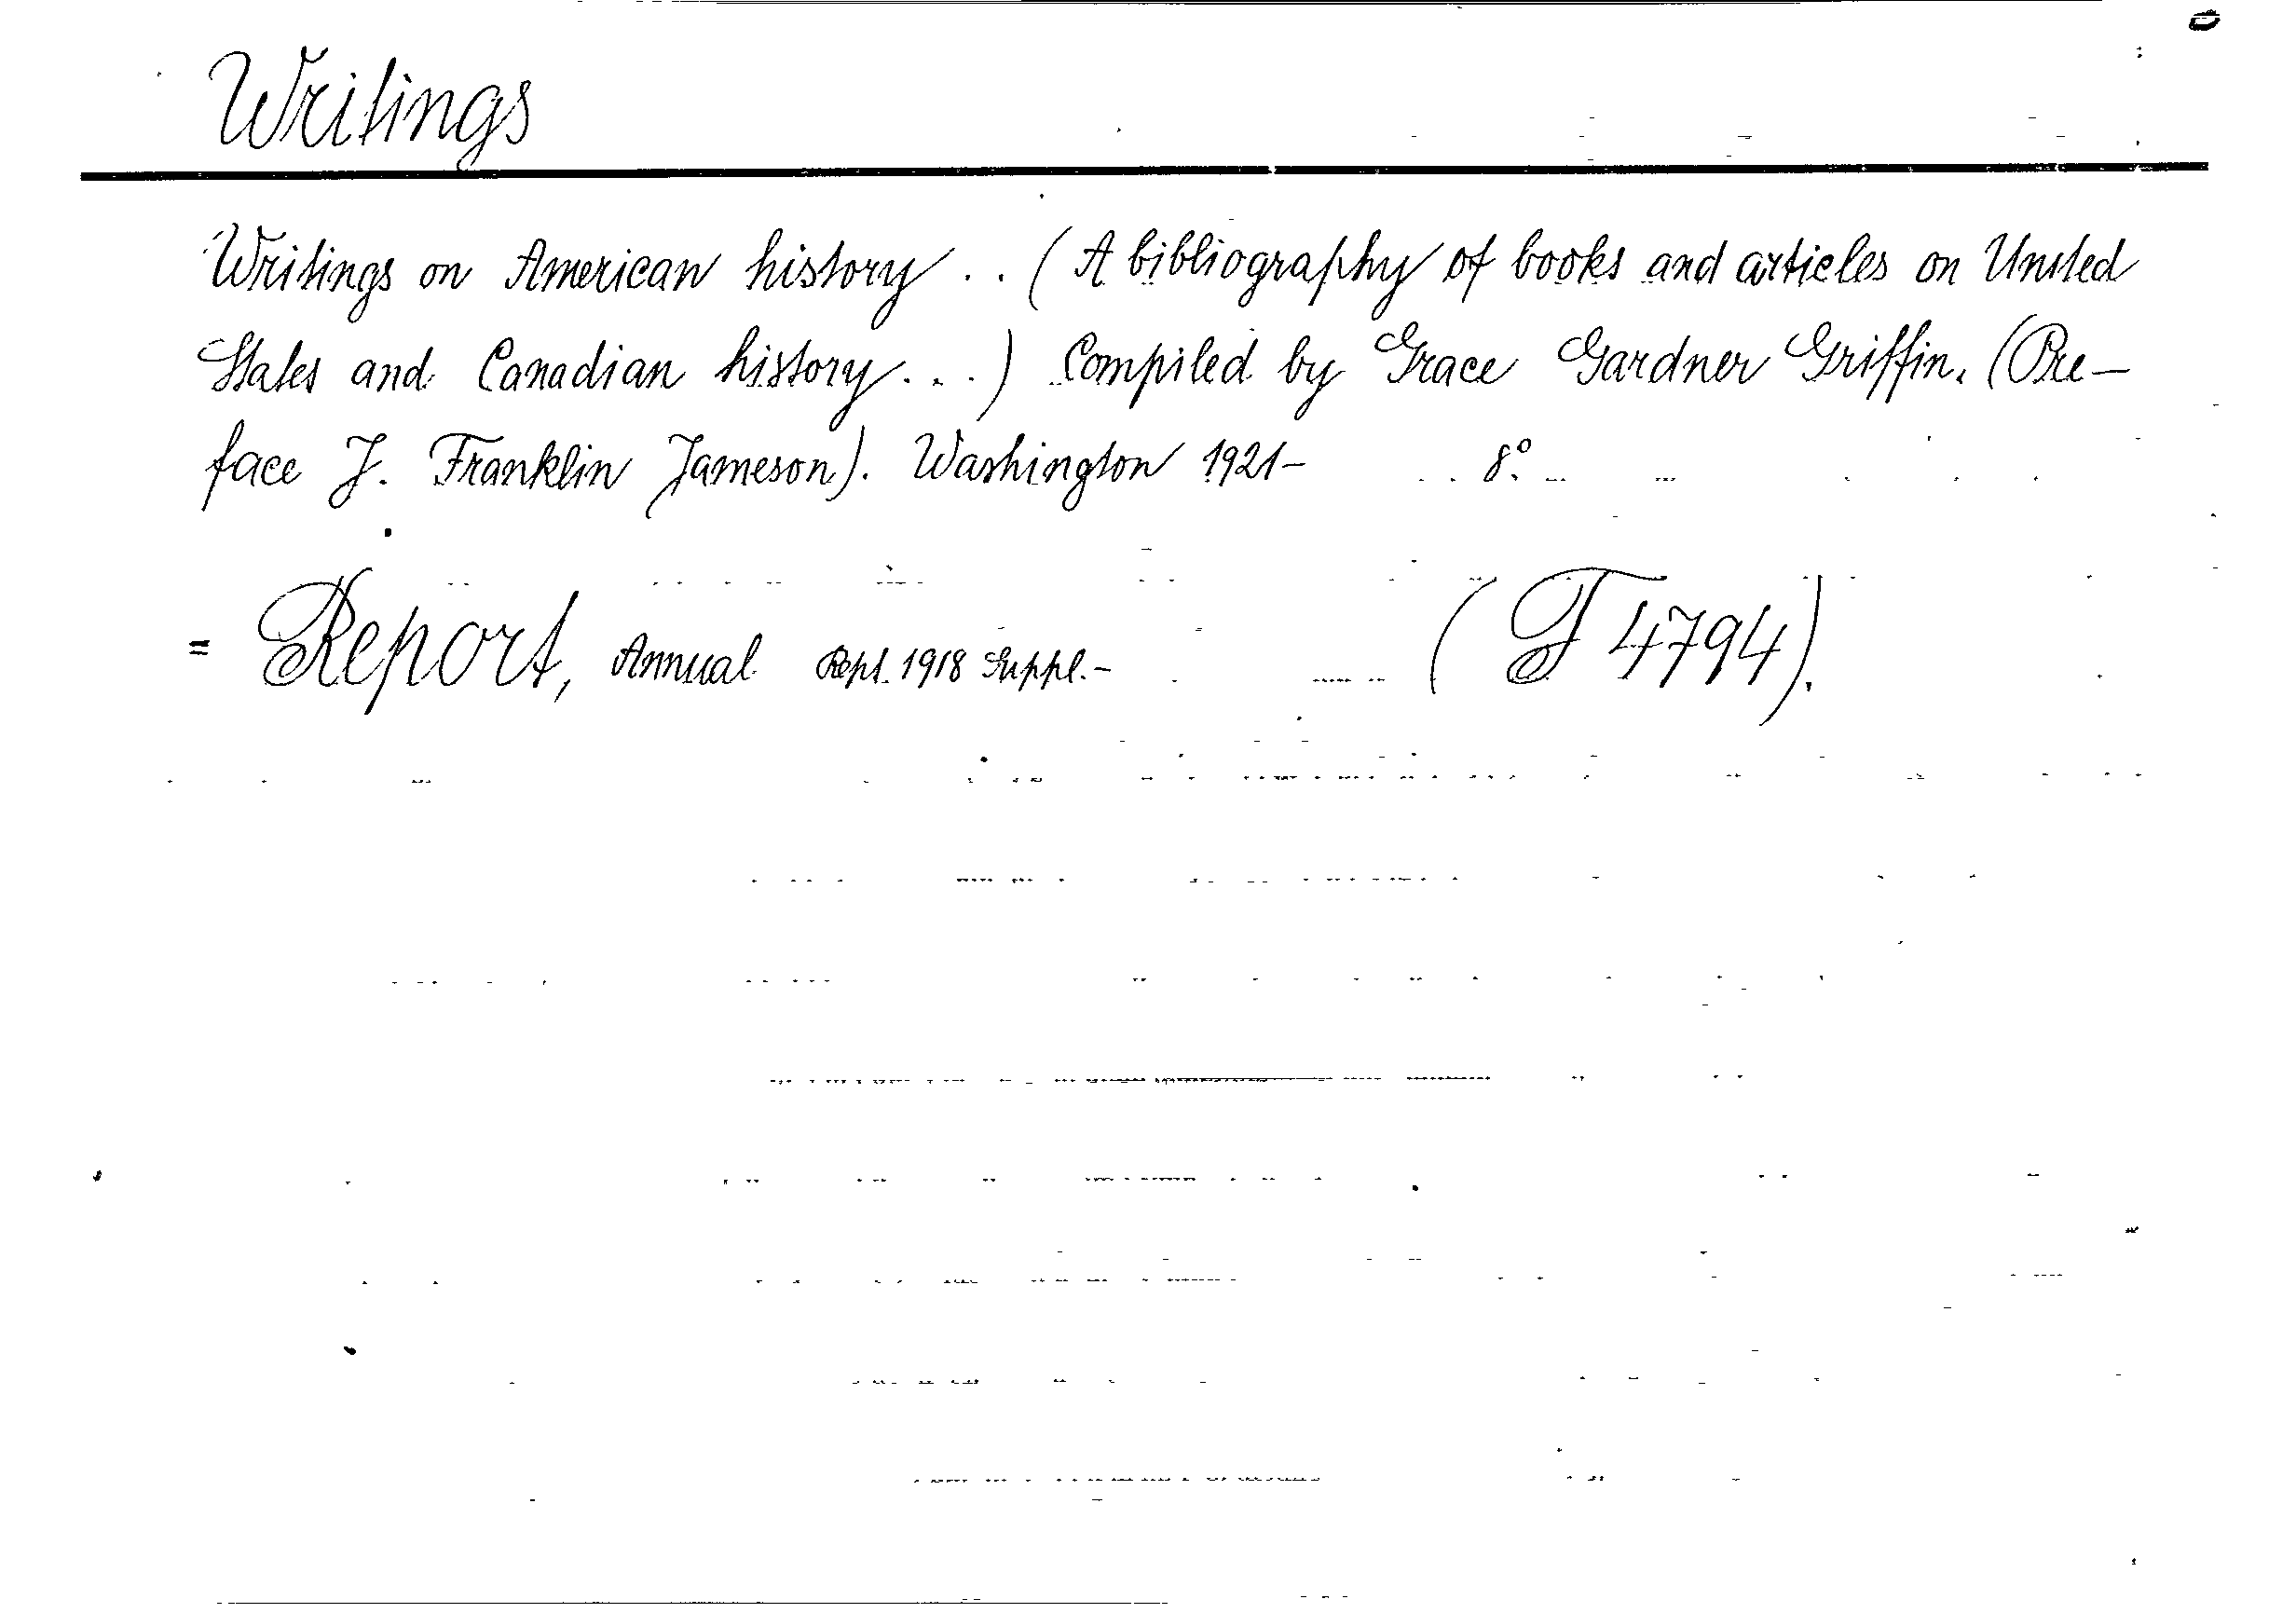 Writings
Writings on American history . . ( A bibliography of books and articles on United
States and Canadian history . . . ) Compiled by Grace Gardner Griffin. (Pre-
face J. Franklin Jameson). Washington 1921- 8°.
= Report, Annual Rept. 1918 Suppl.- ( T 4794).